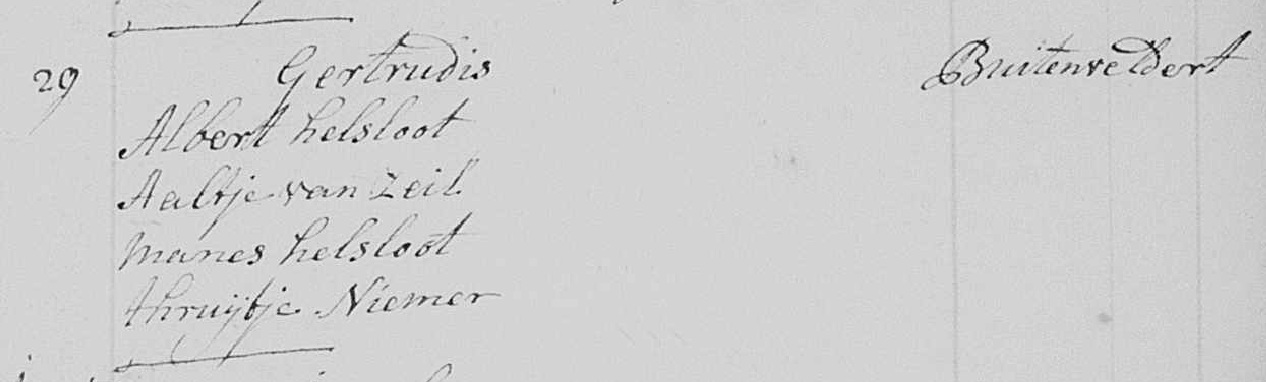 29 Gertrudis Buitenveldert
Albert helsloot
Aaltje van Zeil
Manes helsloot
thruijtje Niemer